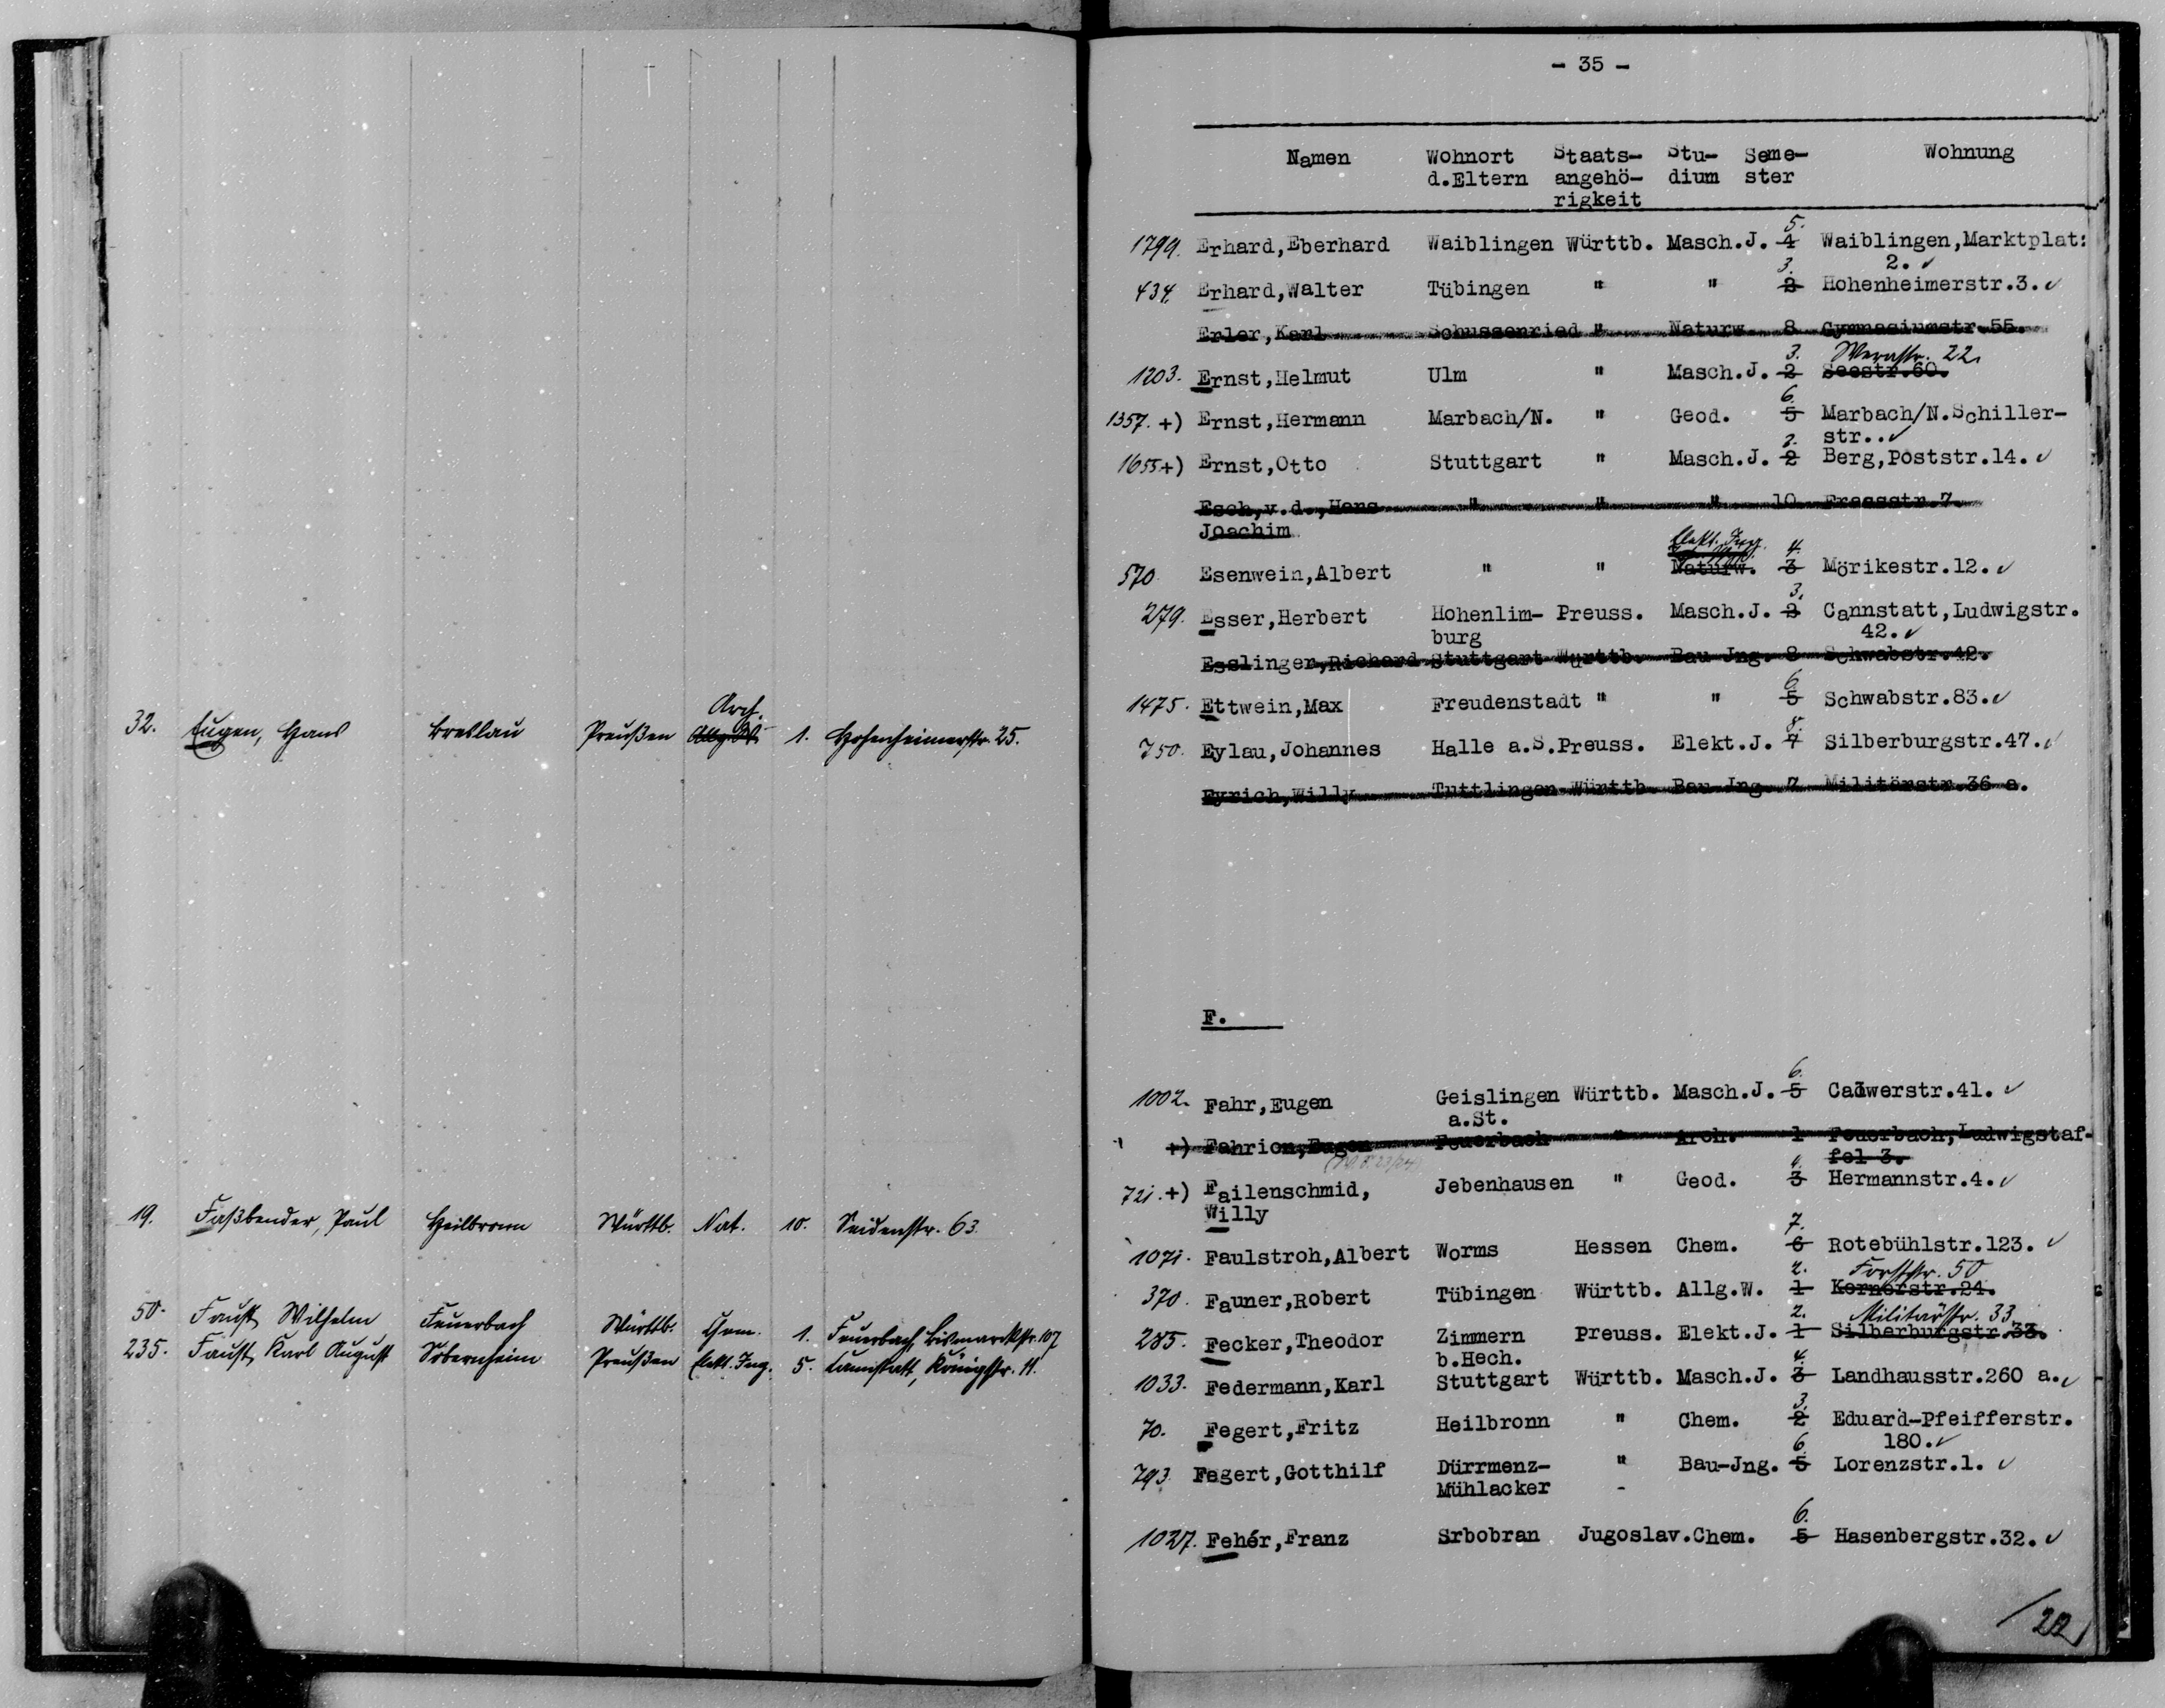 32. Eugen, Hans Breslau Preußen Arch. 1. Hohenheimerstr. 25.
19. Faßbender, Paul Heilbronn Württb. Nat. 10. Seidenstr. 63.
50. Faust, Wilhelm Feuerbach Württb. Chem. 1. Feuerbach, Bismarckstr. 107
235. Faust, Karl August Sobernheim Preußen Elekt. Ing. 5. Cannstatt, Königstr. 11.
- 35 -
Namen Wohnort Staats- Stu- Seme- Wohnung
d.Eltern angehö- dium ster
rigkeit
5.
1799. Erhard,Eberhard Waiblingen Württb. Masch.J. 4 Waiblingen,Marktplat:
3. 2. ✓
434. Erhard,Walter Tübingen " " 2 Hohenheimerstr.3. ✓
Erler,Karl Schussenried " Naturw. 8 Gymnasiumstr.55.
3. Werastr. 22.
1203. Ernst,Helmut Ulm " Masch.J. 2 Seestr.60.
6.
1357. +) Ernst,Hermann Marbach/N. " Geod. 5 Marbach/N.Schiller-
str.. ✓
1655 +) Ernst,Otto Stuttgart " Masch.J. 2 Berg,Poststr.14. ✓
Esch,v.d.,Hans " " " 10 Fraasstr.7.
Joachim
Elekt. Ing. 4.
570 Esenwein,Albert " " Naturw. 3 Mörikestr.12. ✓
3.
279. Esser,Herbert Hohenlim- Preuss. Masch.J. 2 Cannstatt,Ludwigstr.
burg 42. ✓
Esslinger,Richard Stuttgart Württb. Bau Jng. 8 Schwabstr.42.
6.
1475. Ettwein,Max Freudenstadt " " 5 Schwabstr.83. ✓
8.
750. Eylau,Johannes Halle a.S.Preuss. Elekt.J. 7 Silberburgstr.47. ✓
Eyrich,Willy Tuttlingen Württb. Bau Jng. 7 Militärstr.36 a.
F.
6.
1002. Fahr,Eugen Geislingen Württb. Masch.J. 5 Calwerstr.41. ✓
a.St.
+) Fahrion,Eugen Feuerbach " Arch. 1 Feuerbach,Ludwigstaf-
4. fel 3.
721. +) Failenschmid, Jebenhausen " Geod. 3 Hermannstr.4. ✓
Willy
7.
1071. Faulstroh,Albert Worms Hessen Chem. 6 Rotebühlstr.123. ✓
2. Forststr. 50
370. Fauner,Robert Tübingen Württb. Allg.W. 1 Kernerstr.24.
2. Militärstr. 33.
285. Fecker,Theodor Zimmern Preuss. Elekt.J. 1 Silberburgstr.33.
b.Hech. 4.
1033. Federmann,Karl Stuttgart Württb. Masch.J. 3 Landhausstr.260 a. ✓
3.
70. Fegert,Fritz Heilbronn " Chem. 2 Eduard-Pfeifferstr.
6. 180. ✓
793. Fegert,Gotthilf Dürrmenz- " Bau-Jng. 5 Lorenzstr.1. ✓
Mühlacker -
6.
1027. Fehér,Franz Srbobran Jugoslav.Chem. 5 Hasenbergstr.32. ✓